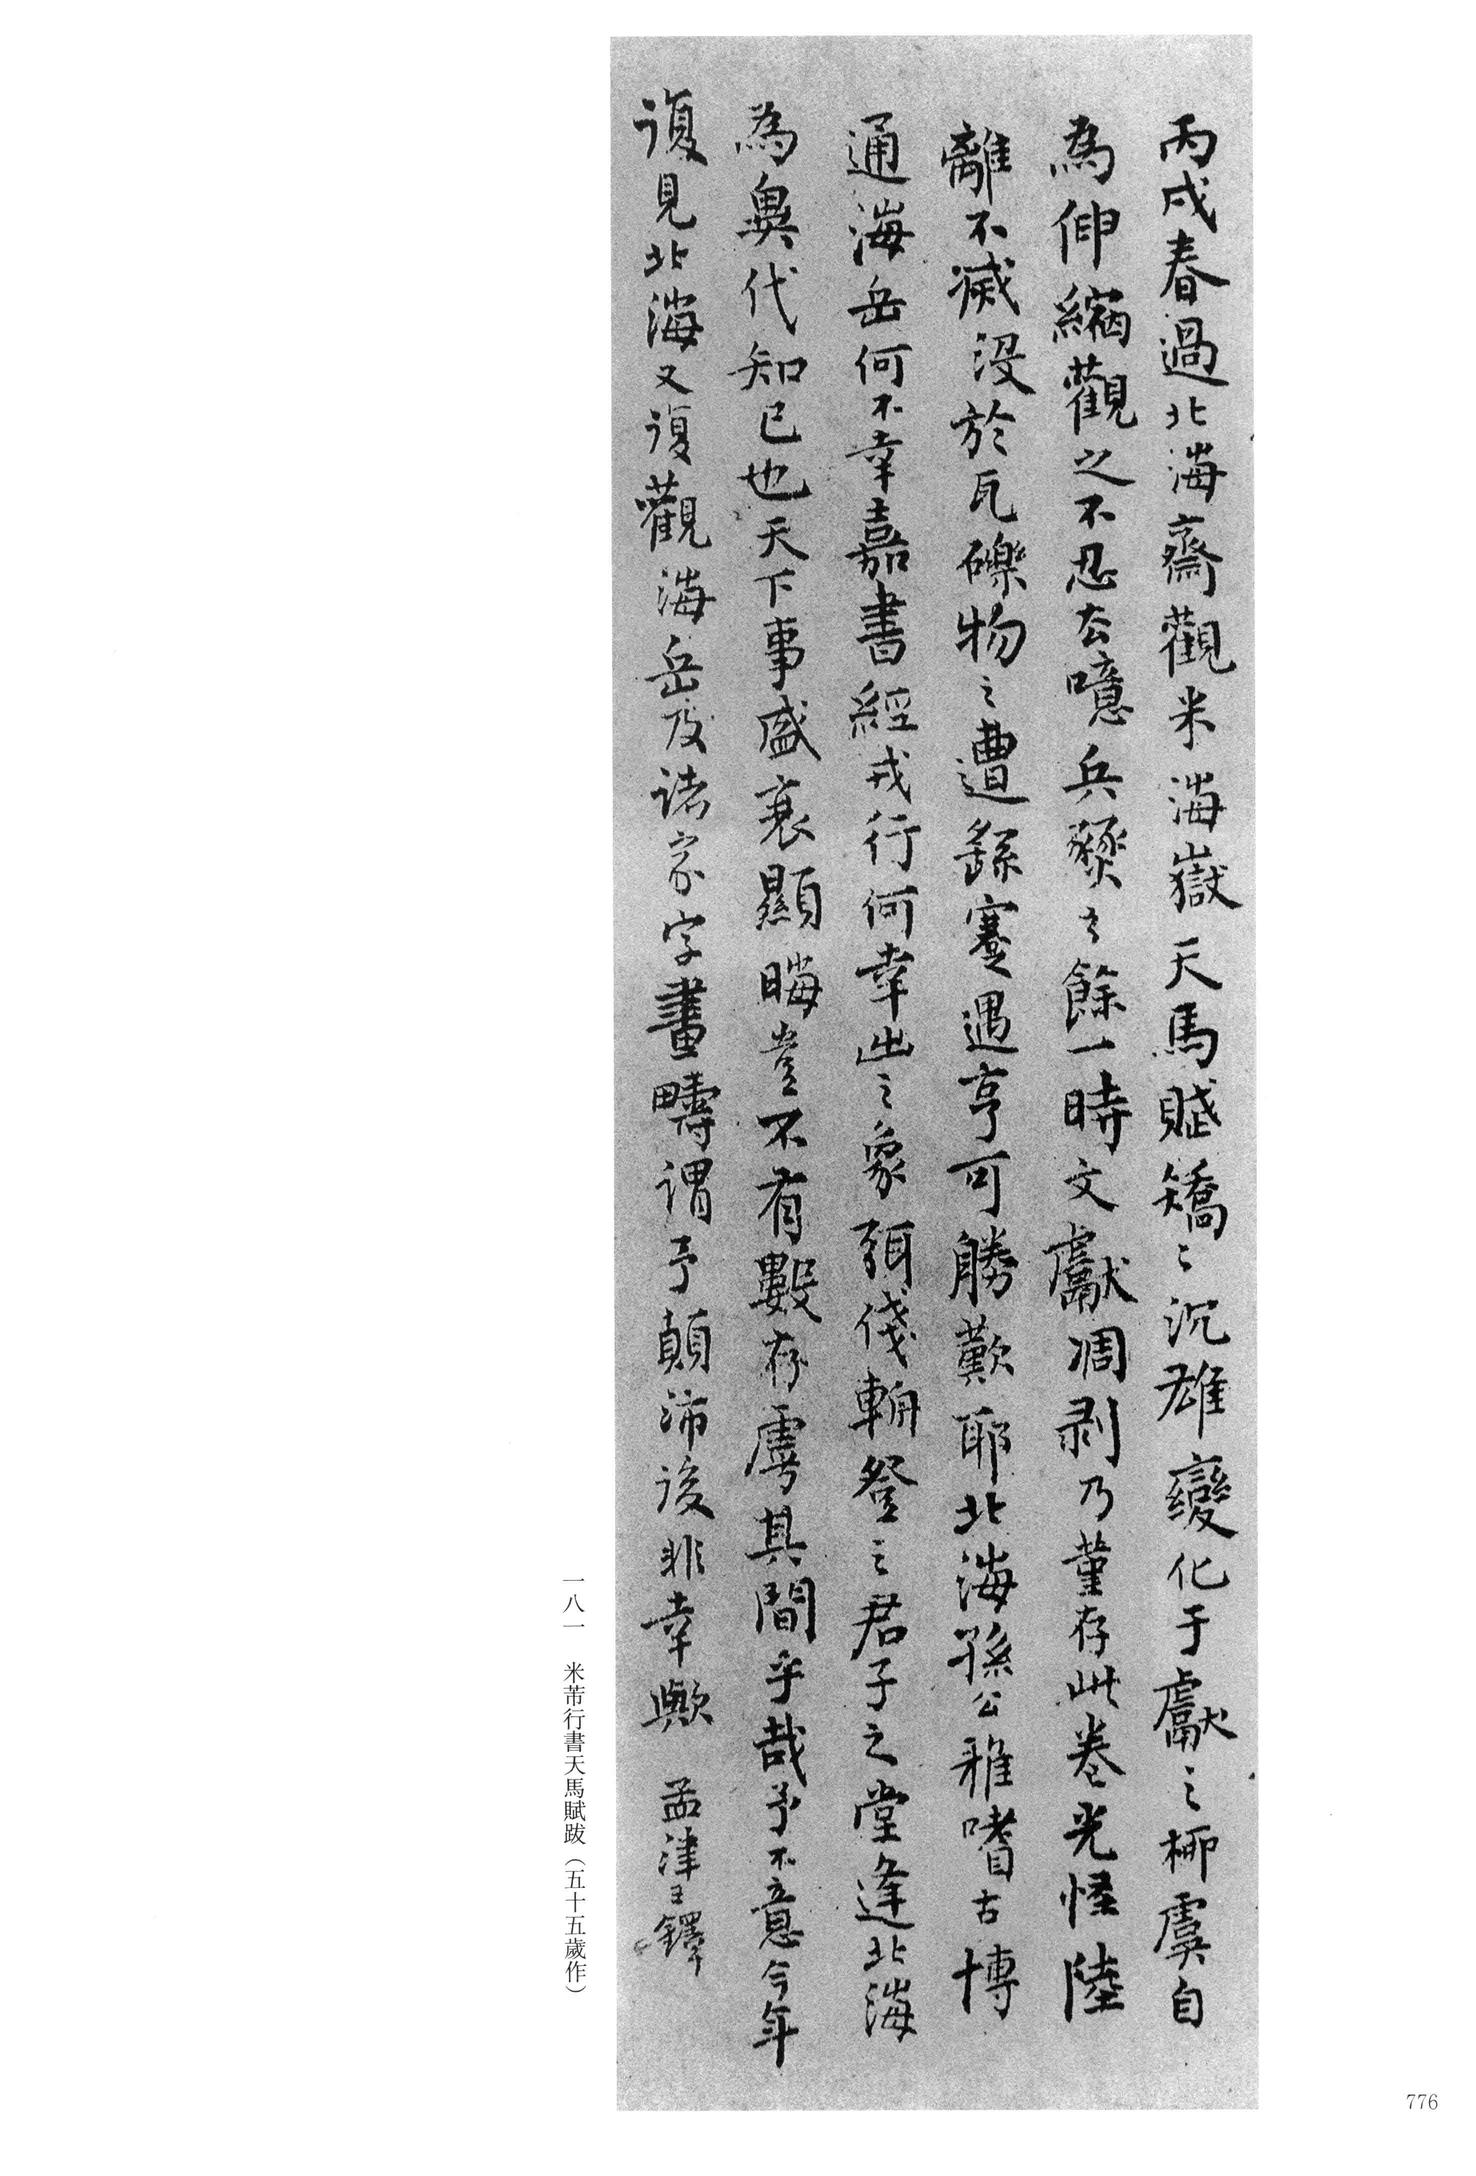 丙戌春過北海齋觀米海嶽天馬賦矯〻沉雄變化于獻之柳虞自
為伸縮觀之不忍去噫兵燹之餘一時文獻凋剥乃堇存此卷光怪陸
離不滅沒於瓦礫物之遭繇蹇遇亨可勝歎耶北海孫公雅嗜古博
通海岳何不幸嘉書經戎行何幸出之象弭俴輈登之君子之堂逢北海
為異代知已也天下事盛衰顯晦豈不有數存虖其間乎哉予不意今年
復見北海又復觀海岳及諸家字畫疇謂予顛沛後非幸歟 孟津王鐸
一八一 米芾行書天馬賦跋（五十五歲作）
776